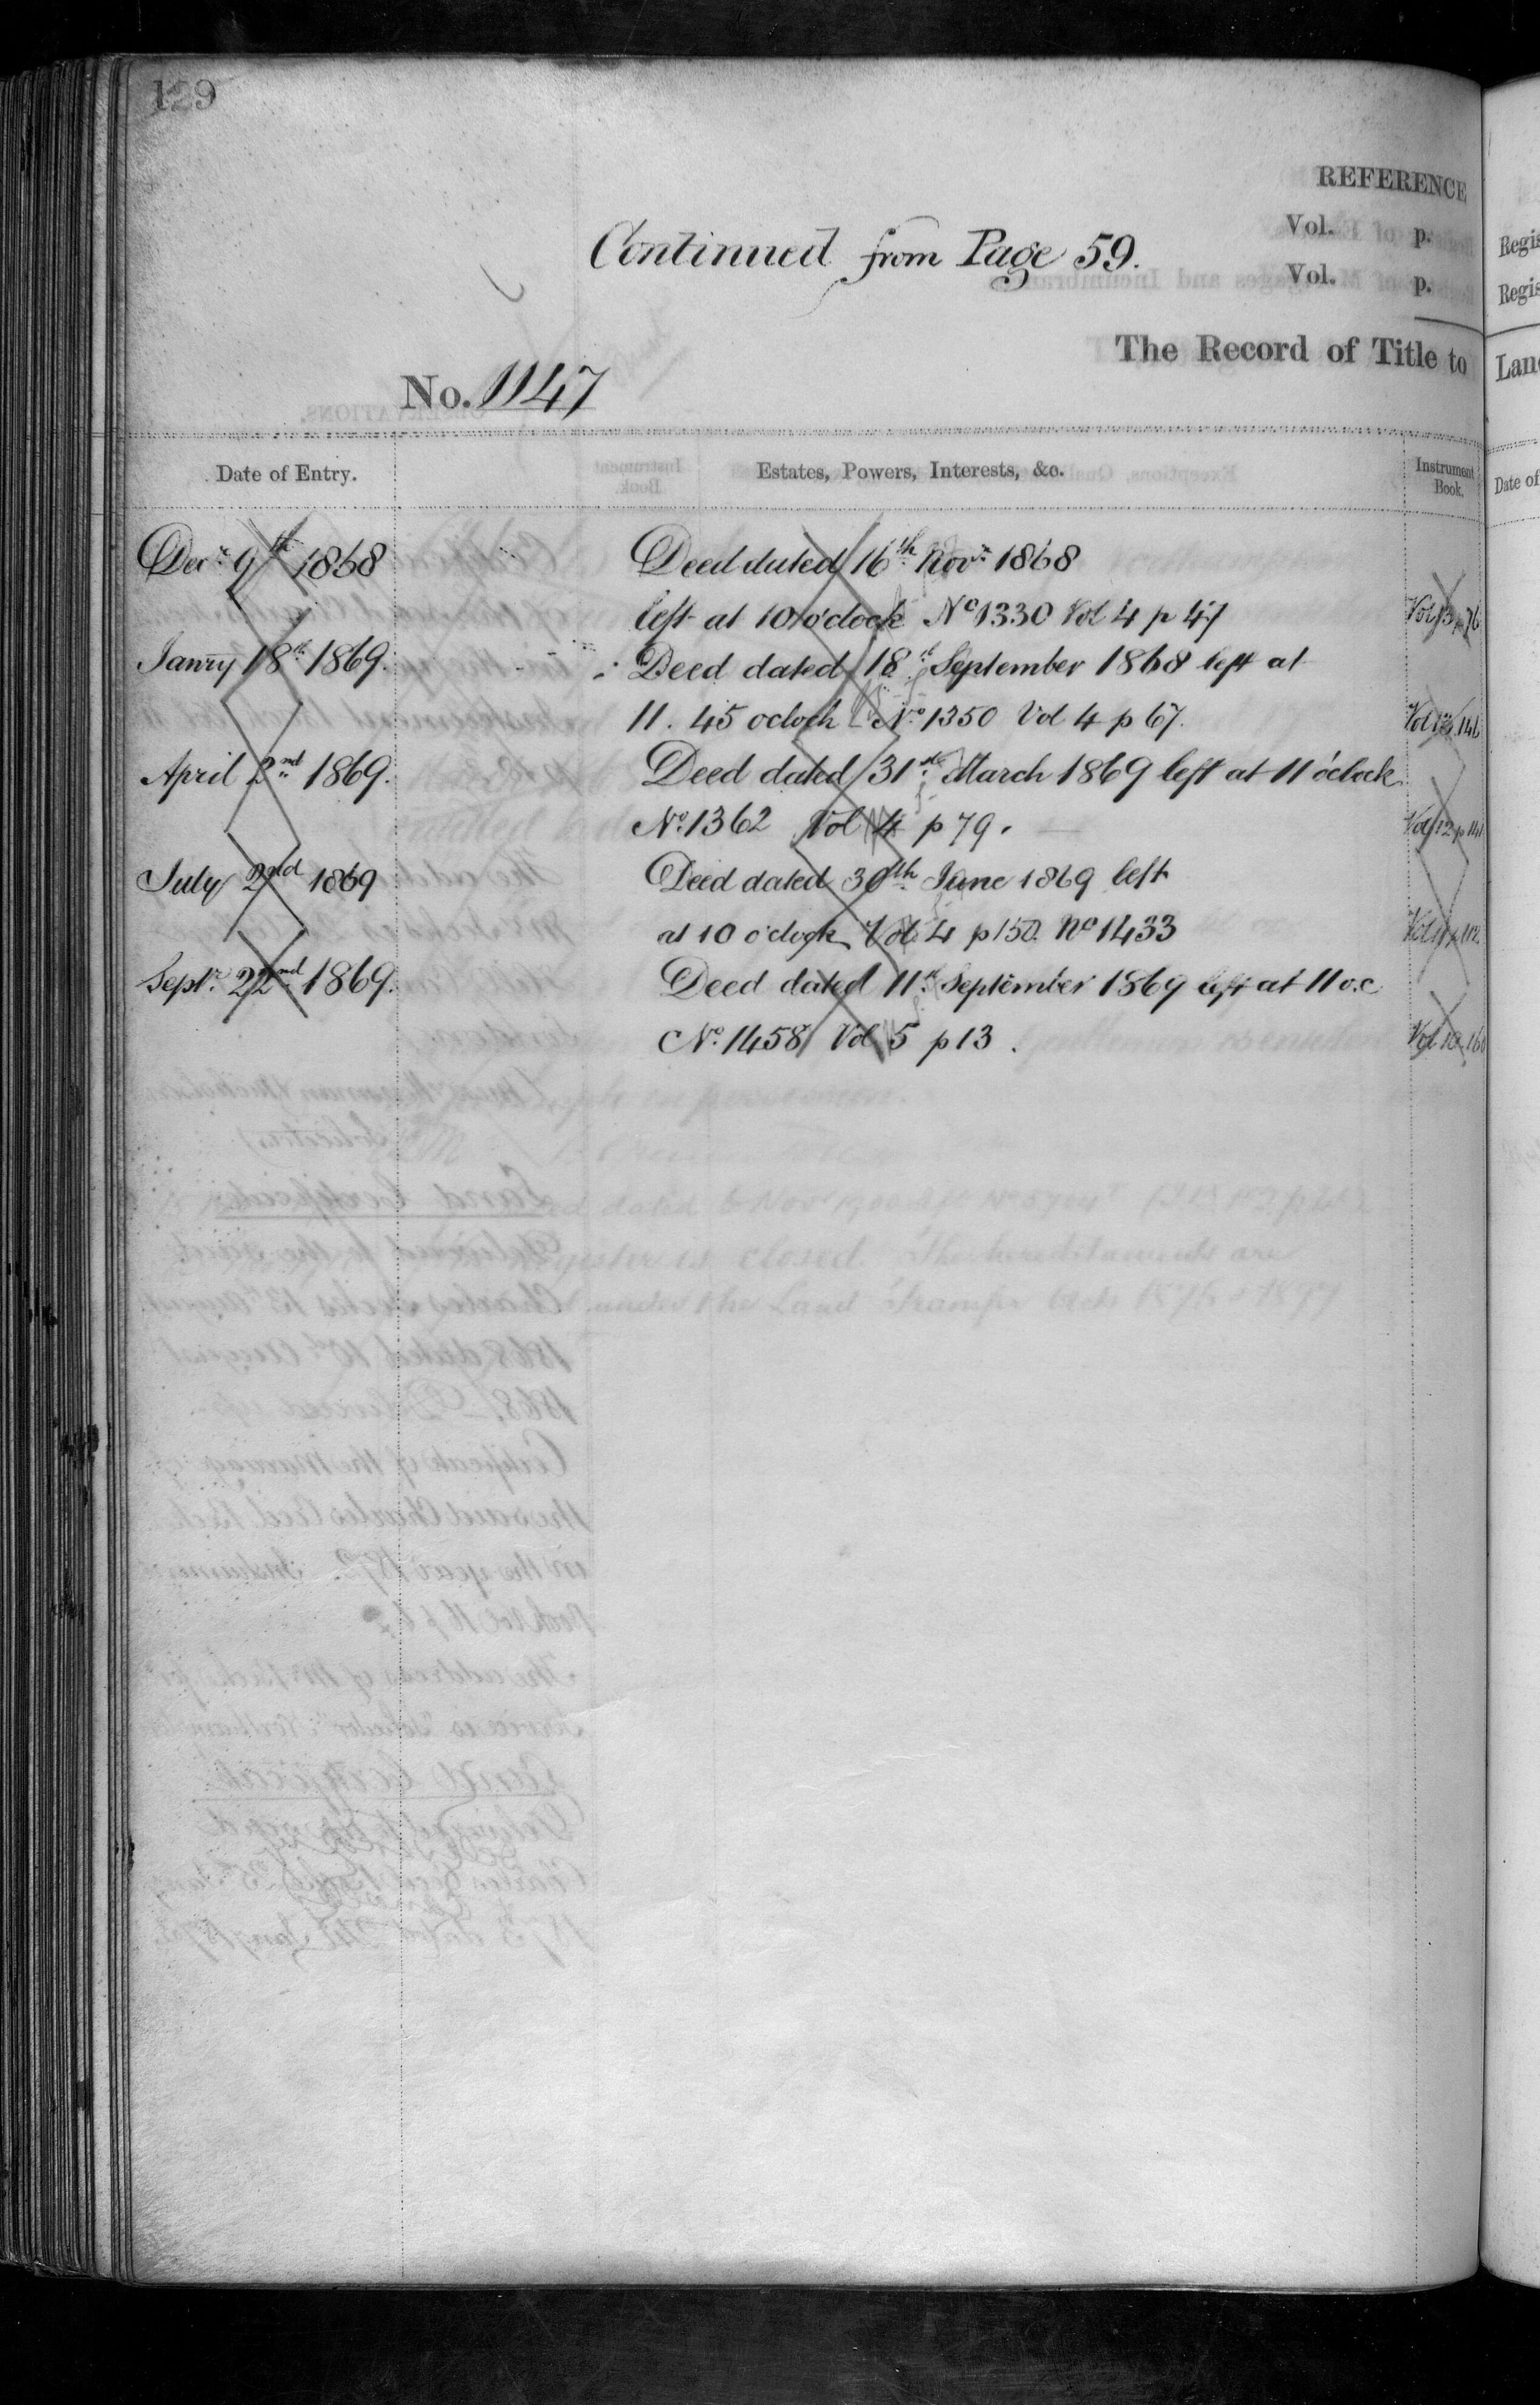 129
REFERENCE
Continued from Page 59.
Vol. p.
Vol. p.
The Record of Title to
No. 1147
Date of Entry. Estates, Powers, Interests, &c. Instrument Book.
Decr. 9th 1868 Deed dated 16th Novr. 1868
left at 10 o'clock No 1330 Vol 4 p 47 Vol 13 p 76
Janry 18th 1869. Deed dated 18th September 1868 left at
11. 45 oclock No. 1350 Vol 4 p 67. Vol 146
April 2nd 1869. Deed dated 31st March 1869 left at 11 o'clock
No. 1362 Vol 4 p 79. Vol 12 p
July 2nd 1869 Deed dated 30th June 1869 left
at 10 o'clock Vol 4 p 150. No 1433 Vol p 112
Septr. 22nd 1869. Deed dated 11th September 1869 left at 11 o.c
No. 1458 Vol 5 p 13. Vol 10
Regis
Regis
Land
Date of